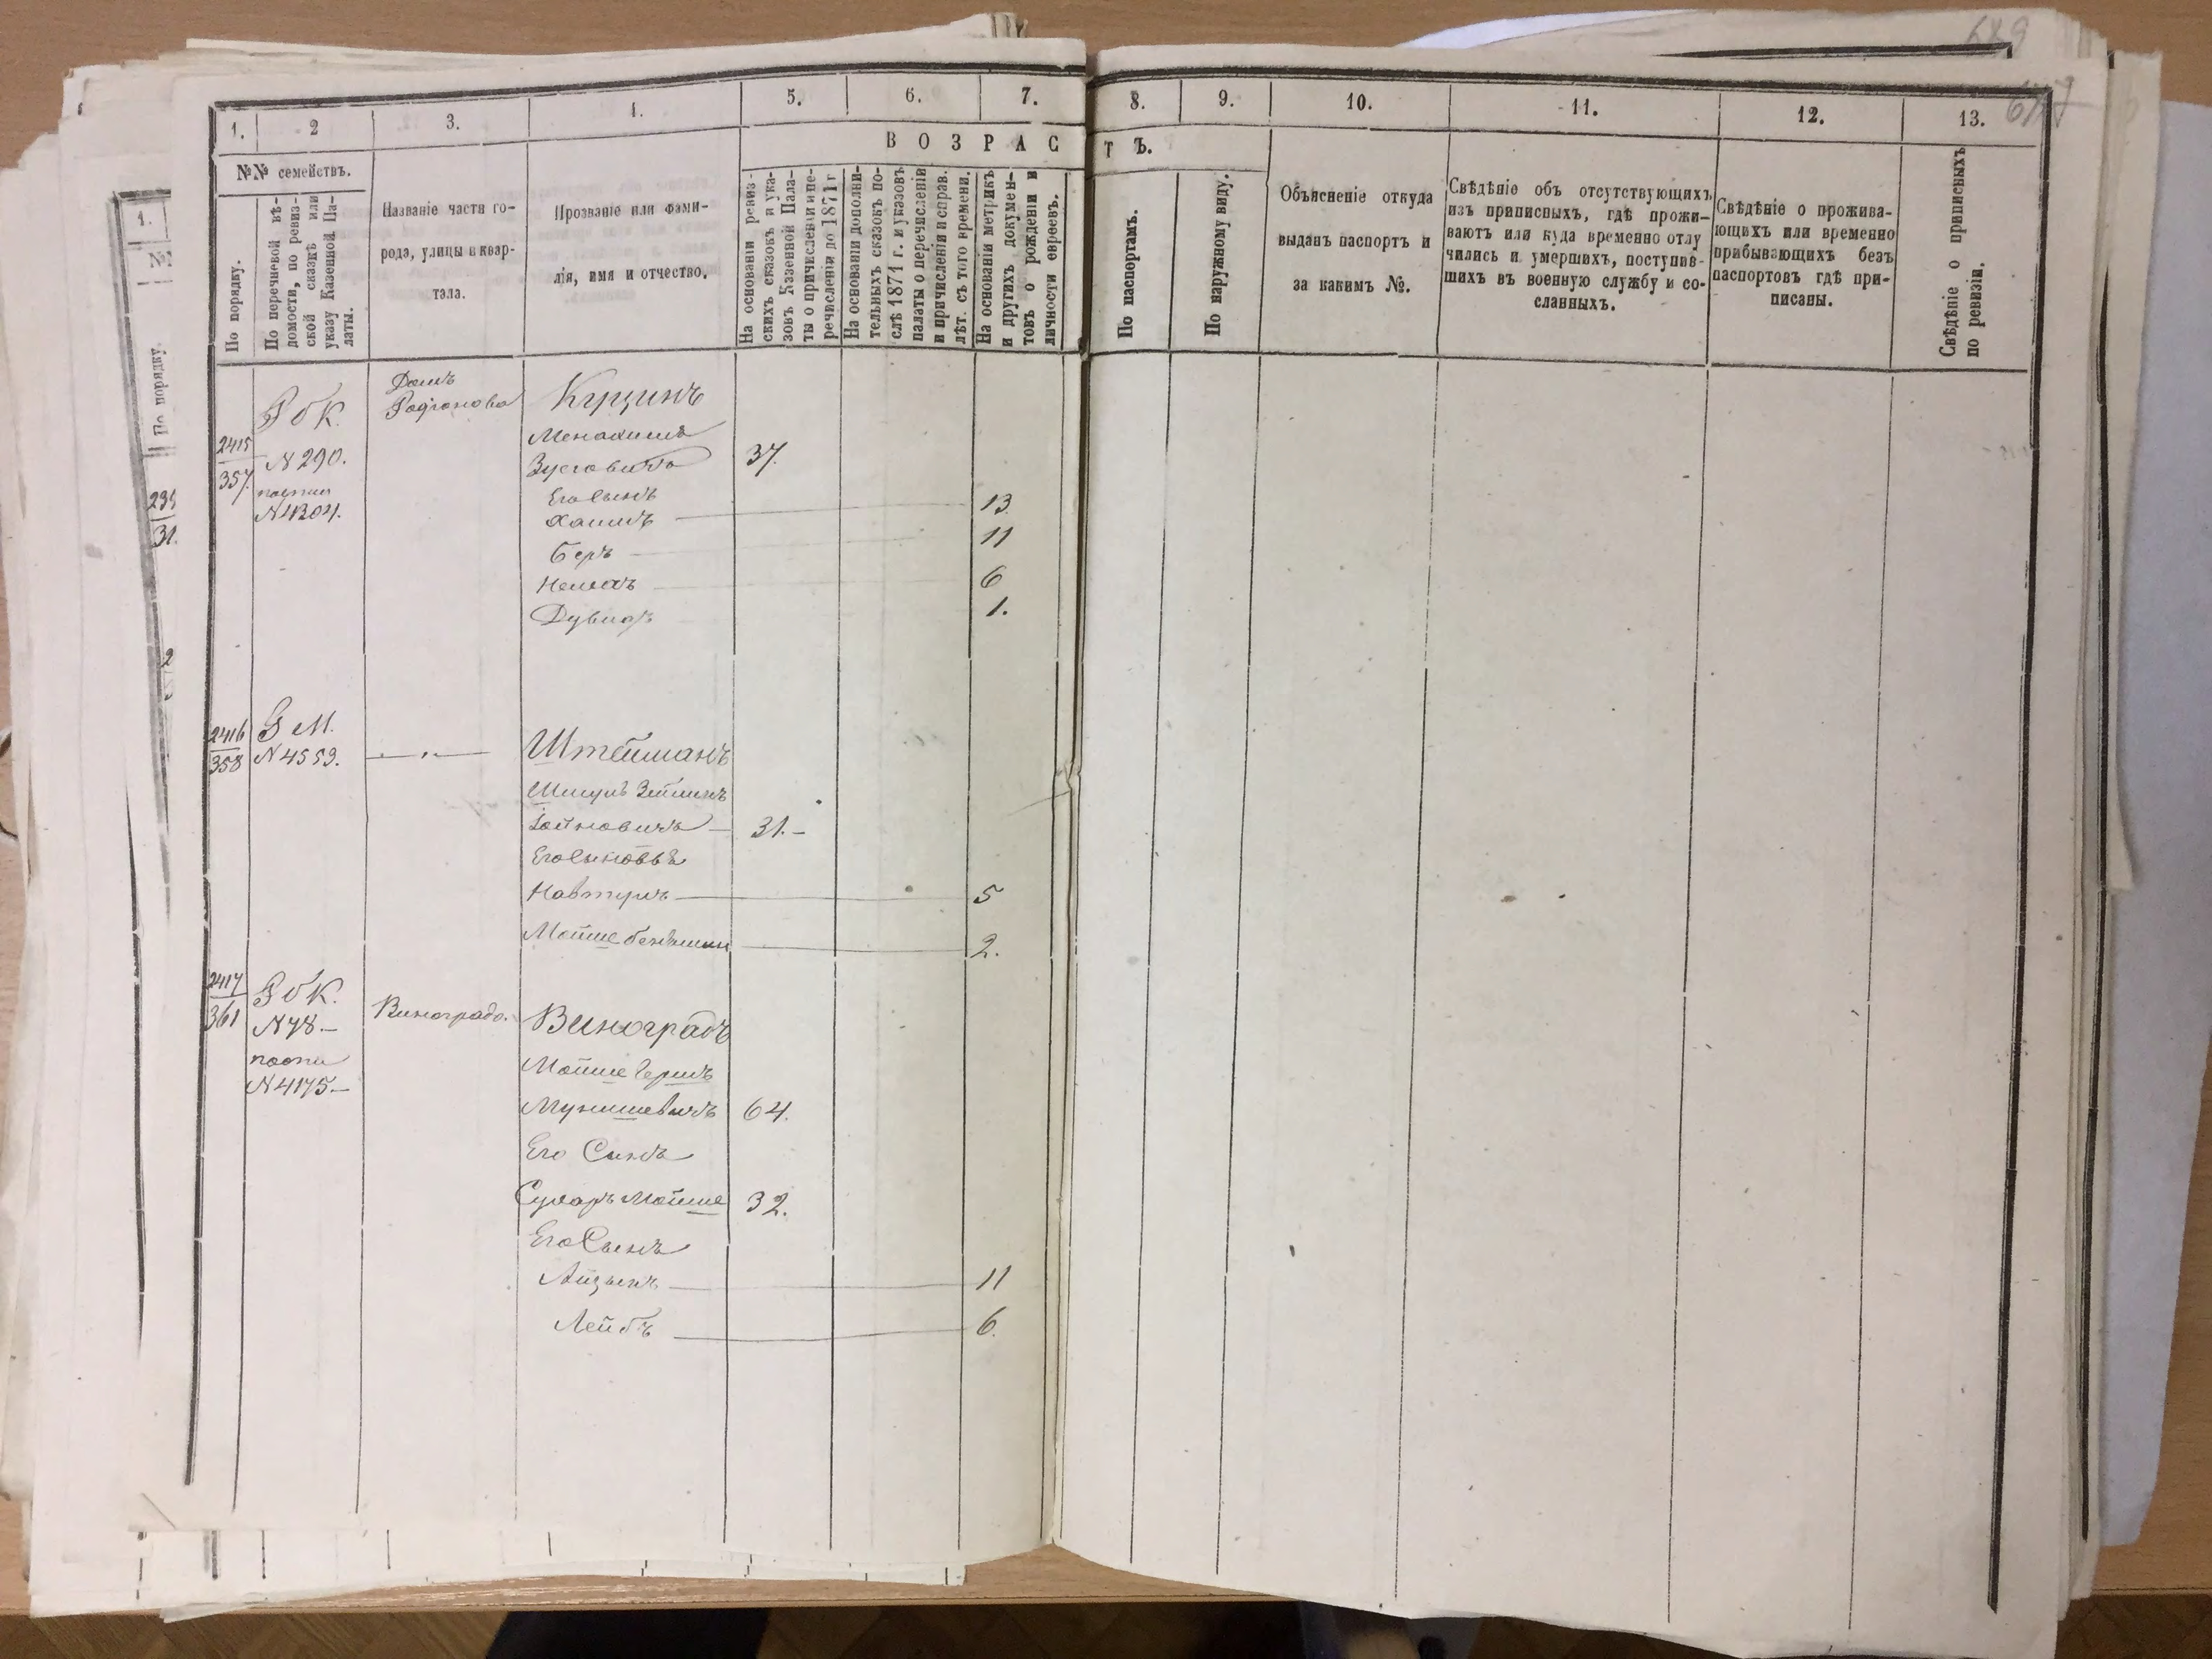 1. 2 3. 4. 5. 6. 7. 8. 9. 10. 11. 12. 13.
В О З Р А С Т Ъ.
№№ семействъ.
По порядку.
По перечневой вѣ-
домости, по ревиз-
ской сказкѣ или
указу Казенной Па-
латы.
Названіе части го-
рода, улицы и квар-
тала.
Прозваніе или фами-
лія, имя и отчество.
На основаніи ревиз-
скихъ сказокъ и ука-
зовъ Казенной Пала-
ты о причисленіи и пе-
речисленіи до 1871 г
На основаніи дополни-
тельныхъ сказокъ по-
слѣ 1871 г. и указовъ
палаты о перечисленіи
и причисленіи и справ.
лѣт. съ того времени.
На основаніи метрикъ
и другихъ докумен-
товъ о рожденіи и
личности евреевъ.
По паспортамъ.
По наружному виду.
Объясненіе откуда
выданъ паспортъ и
за какимъ №.
Свѣдѣніе объ отсутствующихъ
изъ приписныхъ, гдѣ прожи-
ваютъ или куда временно отлу
чились и умершихъ, поступив-
шихъ въ военную службу и со-
сланныхъ.
Свѣдѣніе о прожива-
ющихъ или временно
прибывающихъ безъ
паспортовъ гдѣ при-
писаны.
Свѣдѣніе о приписныхъ
по ревизіи.
Домъ
Р о К.
2415
357.
N 290.
N 4304.
Менахимъ
Зусговичъ 37.
Его сынъ
Хаимъ 13
Беръ 11
Нехах 6
Дувидъ 1.
2416
358
М.
N 4553.
Штейманъ
Его сыновья
Навтулъ 5
31.-
Мойше 2.
2417
361
Р о К.
N 78.-
N 4175-
Виноградо.
Виноградъ
Мойше Гершъ
Мунишевичъ 64.
Его Сынъ
Сухаръ Мойше 32.
Его Сынъ
Айзыкъ 11
Лейбъ 6.